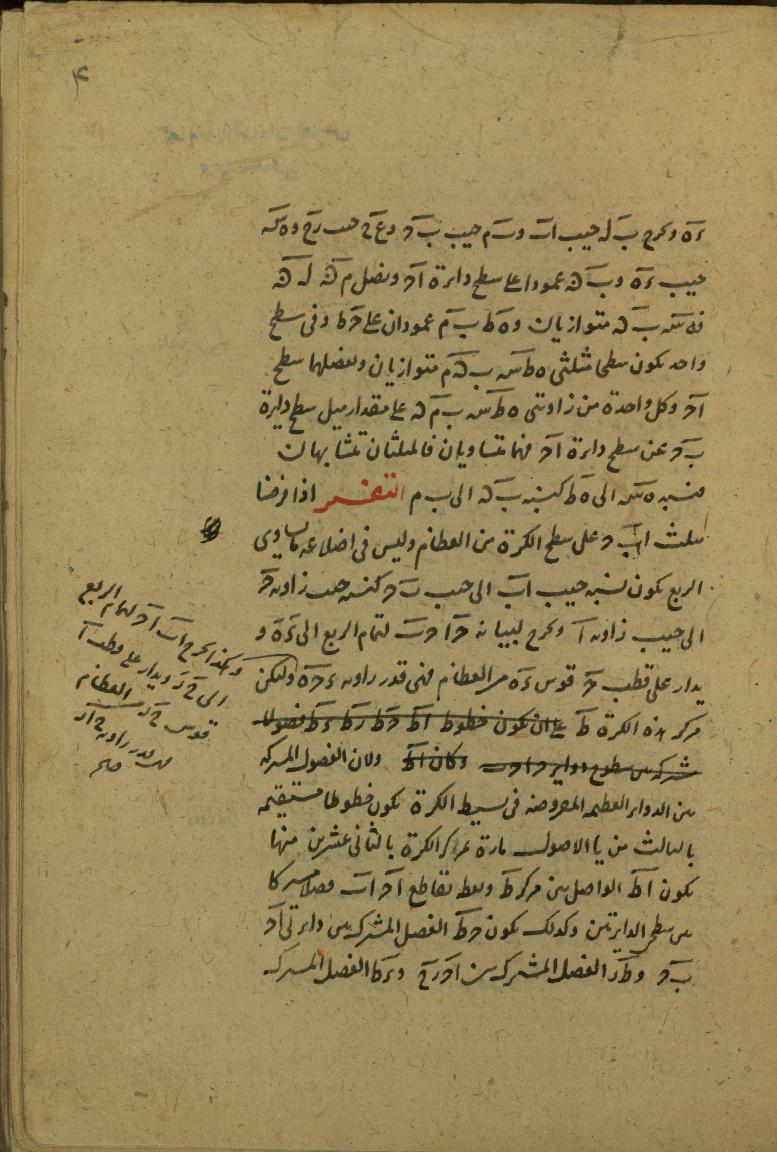 ٤
ءه ونخرج ب لـ جيب اب و ب م جيب ب ج و ع ح جيب ر ح و ه س
جيب ءه و ب ه عمودا على سطح دايرة اج ونصل م ه لـ ه
فه س ب ه متوازيان و ه ط ب م عمودان على ج ط وفى سطح
واحد يكون سطحا مثلثى ه ط س ب ه م متوازيان ويفصلهما سطح
اج وكل واحدة من زاويتى ه ط س ب م ه على مقدار ميل سطح دايرة
ب ج عن سطح دايرة اج فهما متساويان فالمثلثان متشابهان
فنسبة ه س الى ه ط كنسبة ب ه الى ب م التفسير اذا فرضنا
مثلث اب ج على سطح الكرة من العظام وليس فى اضلاعه ما يساوى
الربع يكون نسبة جيب اب الى جيب ب ج كنسبة جيب زاوية ج
الى جيب زاوية ا ونخرج لبيانه ج ا ج ب لتمام الربع الى ءه و
يدار على قطب ج قوس ءه من العظام فهى قدر زاوية ء ج ه وليكن
مركز هذه الكرة ط على ان يكون خطوط اط ج ط ر ط ء ط فصولا
مشتركة بين سطوح دواير ج ا ج ب وكان اط ولان الفصول المشتركة
بين الدواير العظيمة المفروضة فى بسيط الكرة يكون خطوطا مستقيمة
بالثالث من يا الاصول مارة بمركز الكرة بالثانى عشر من منها
يكون اط الواصل بين مركز ط ونقطة تقاطع اج اب فصلا مشتركا
بين سطحى الدايرتين وكذلك يكون ج ط الفصل المشترك بين دايرتى اج
ب ج و ط ر الفصل المشترك بين اج ر ح و ء ط الفصل المشترك
وكذا نخرج اب اج لتمام الربع
الى ح ر ويدار على قطب ا
قوس ح ر من العظام
فهى قدر زاوية ح ا ر
صح